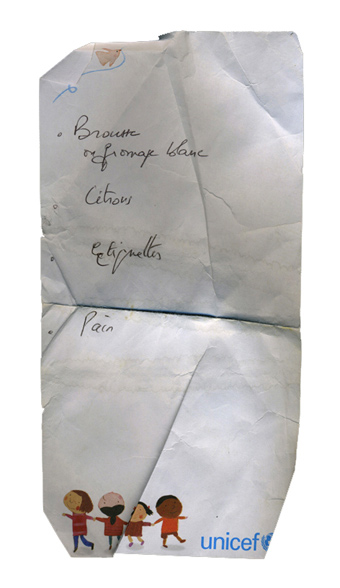 Brousse
ou fromage blanc
Citrons
Etiquettes
Pain
unicef